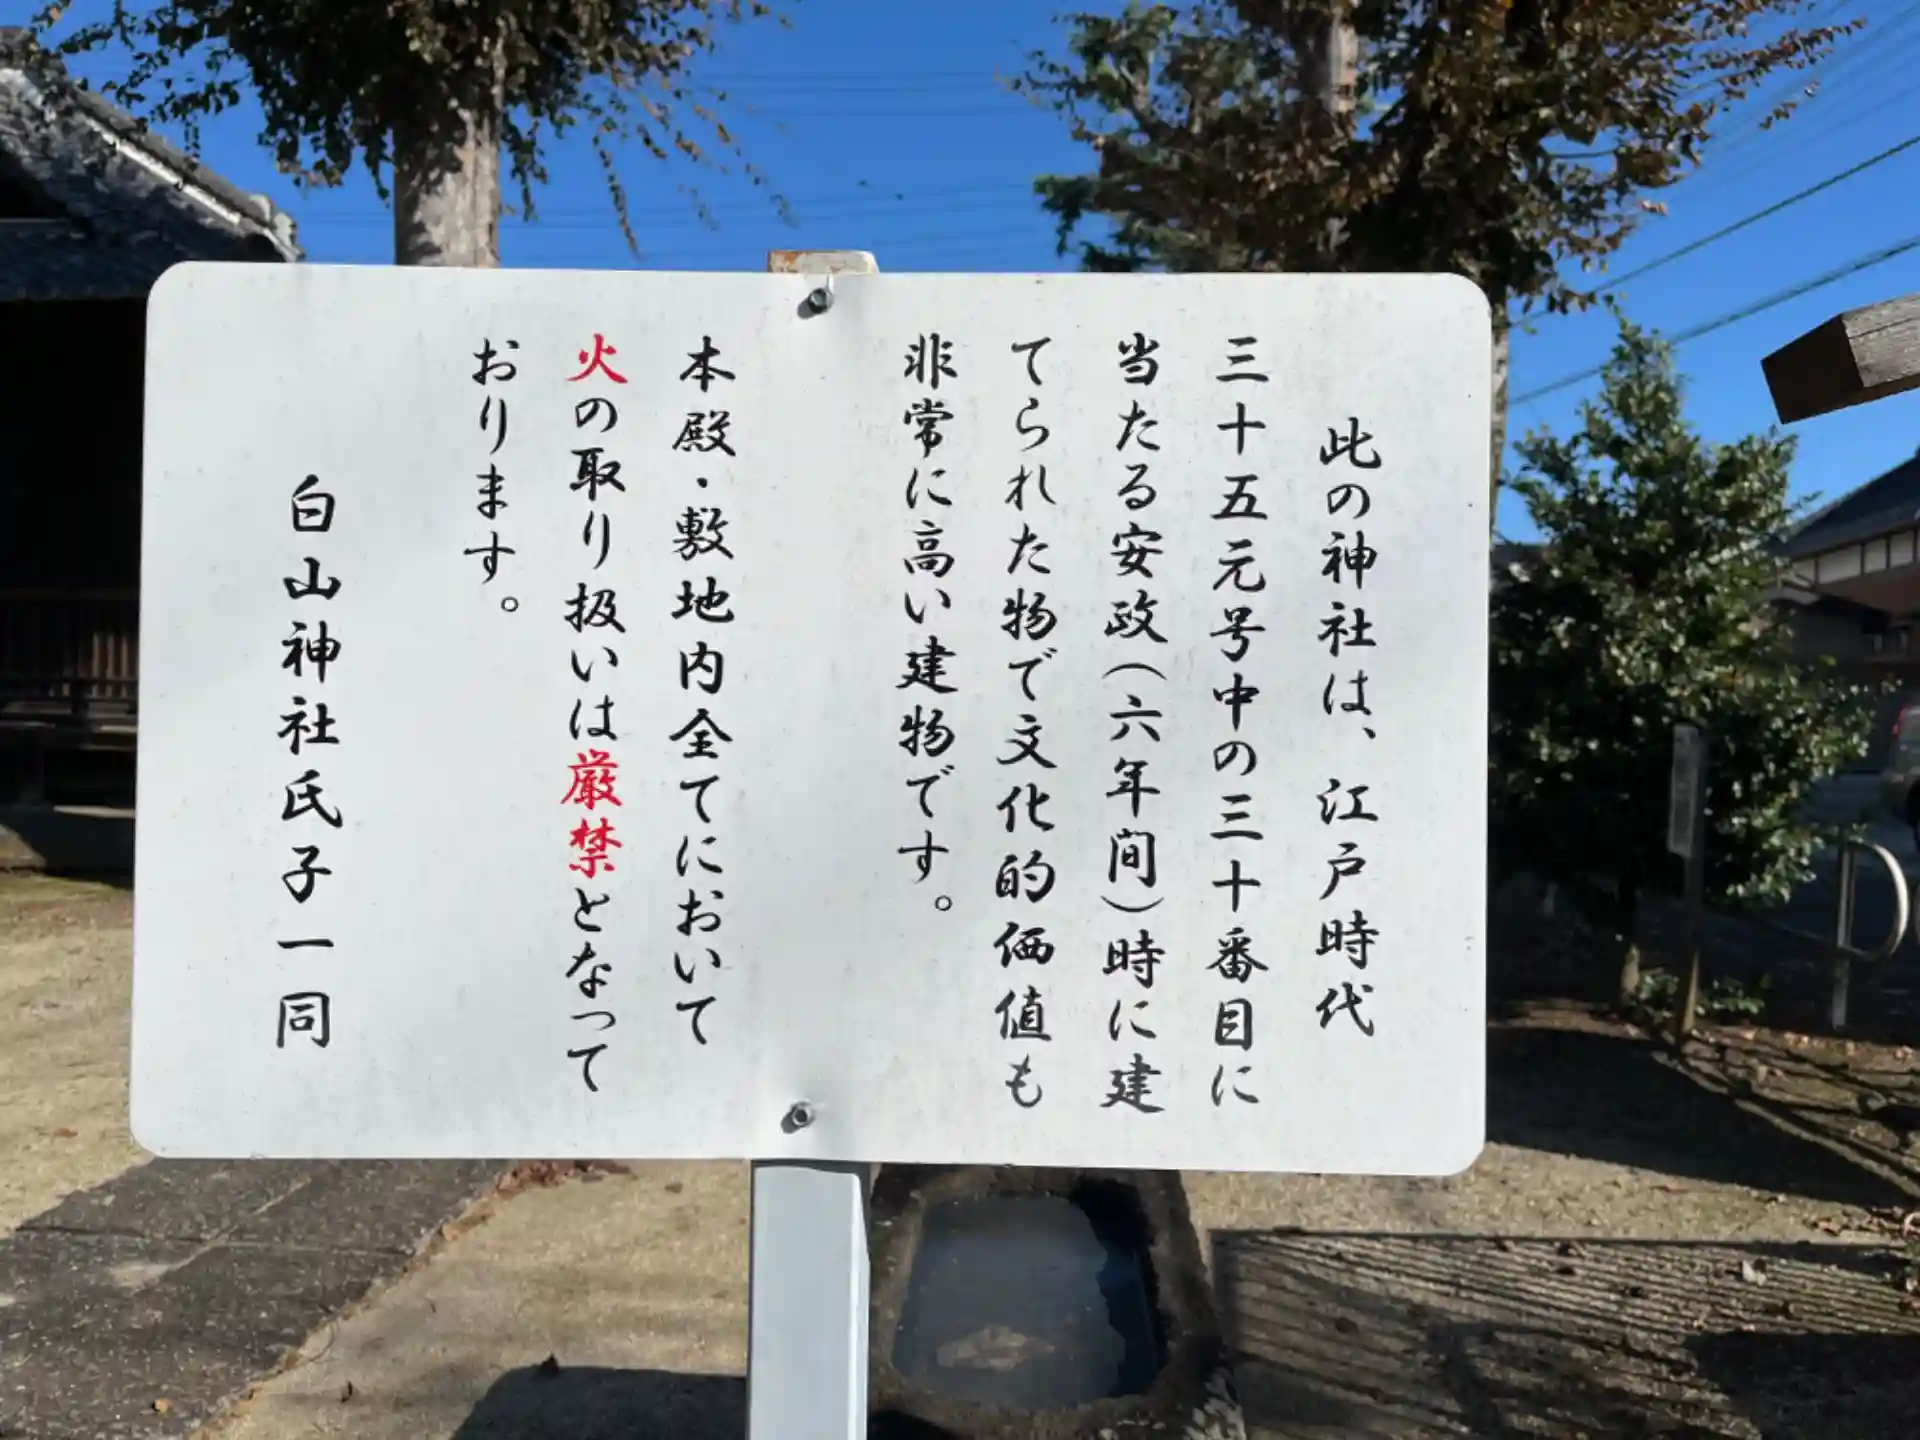 此の神社は、江戸時代
三十五元号中の三十番目に
当たる安政(六年間)時に建
てられた物で文化的価値も
非常に高い建物です。
本殿・敷地内全てにおいて
火の取り扱いは厳禁となって
おります。
白山神社氏子一同